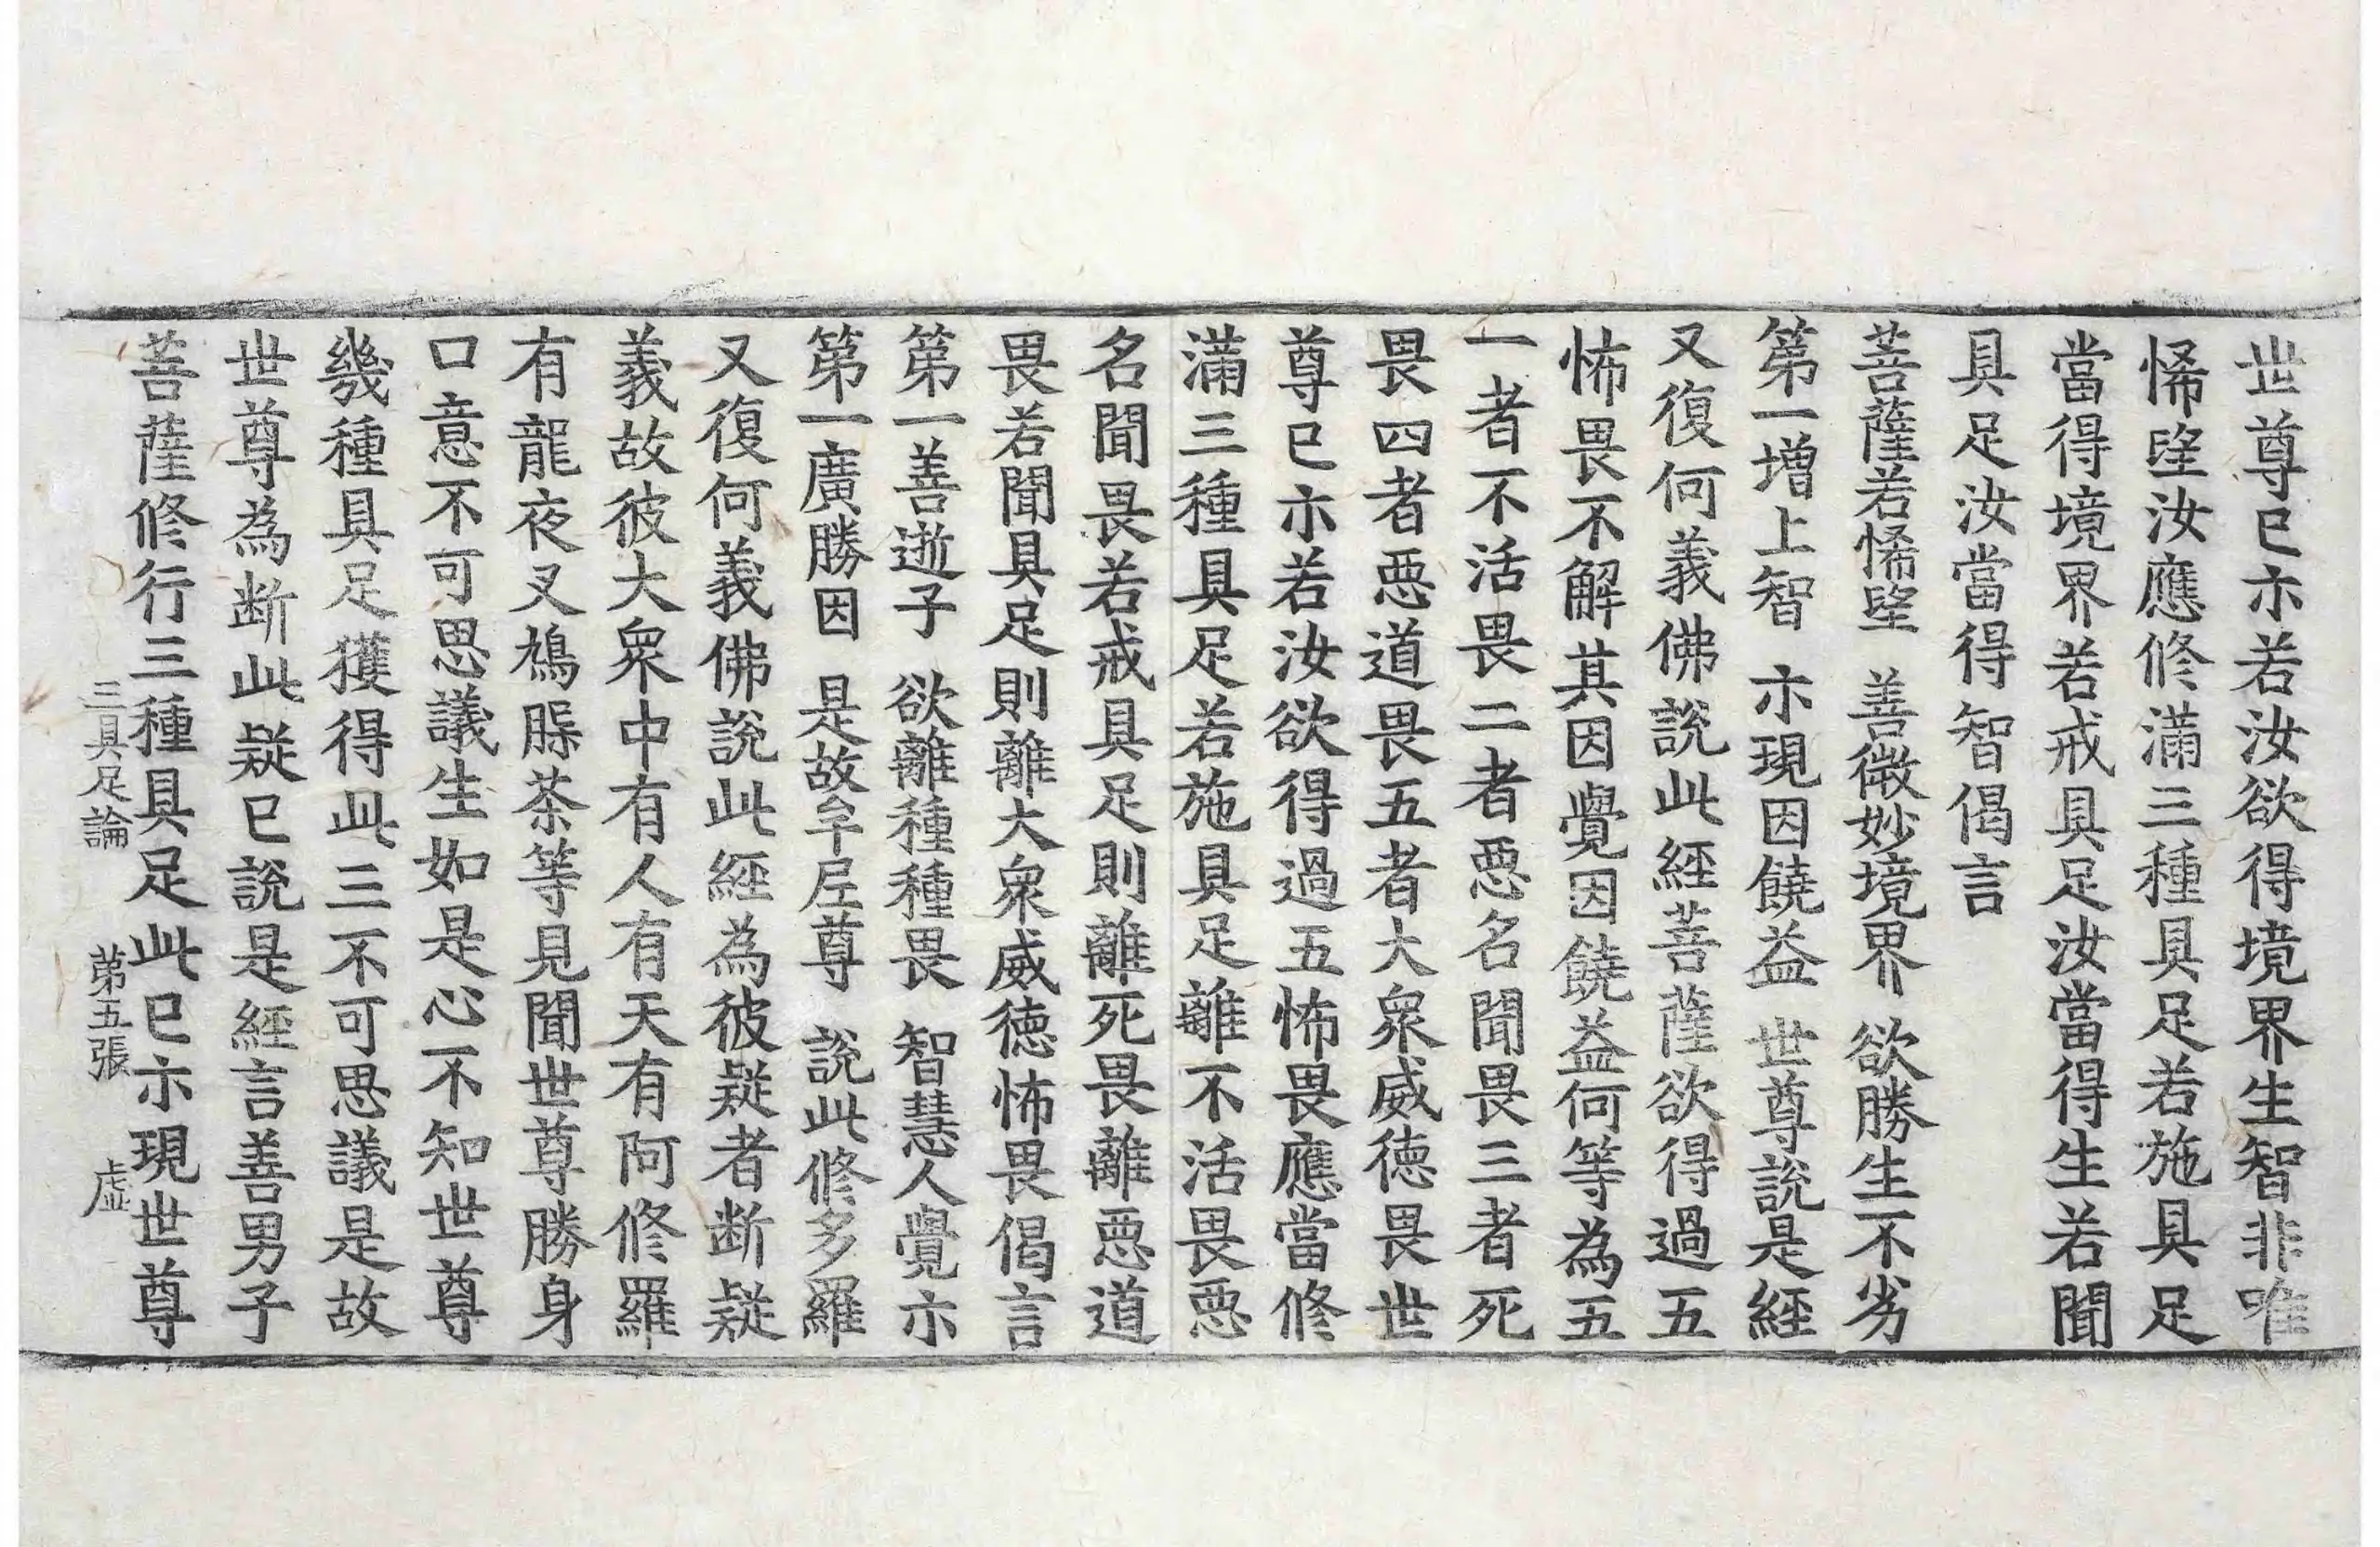 世尊已示若汝欲得境界生智非唯
悕望汝應修滿三種具足若施具足
當得境界若戒具足汝當得生若聞
具足汝當得智偈言
菩薩若悕望　善微妙境界　欲勝生不劣
第一增上智　示現因饒益　世尊說是經
又復何義佛說此經菩薩欲得過五
怖畏不解其因覺因饒益何等為五
一者不活畏二者惡名聞畏三者死
畏四者惡道畏五者大衆威德畏世
尊已示若汝欲得過五怖畏應當修
滿三種具足若施具足離不活畏惡
名聞畏若戒具足則離死畏離惡道
畏若聞具足則離大衆威德怖畏偈言
第一善逝子　欲離種種畏　智慧人覺示
第一廣勝因　是故牟𡰱尊　說此修多羅
又復何義佛說此經為彼疑者断疑
義故彼大衆中有人有天有阿修羅
有龍夜叉鳩𦟛茶等見聞世尊勝身
口意不可思議生如是心不知世尊
幾種具足獲得此三不可思議是故
世尊為断此疑已說是經言善男子
菩薩修行三種具足此已示現世尊
三具足論　第五張　虛